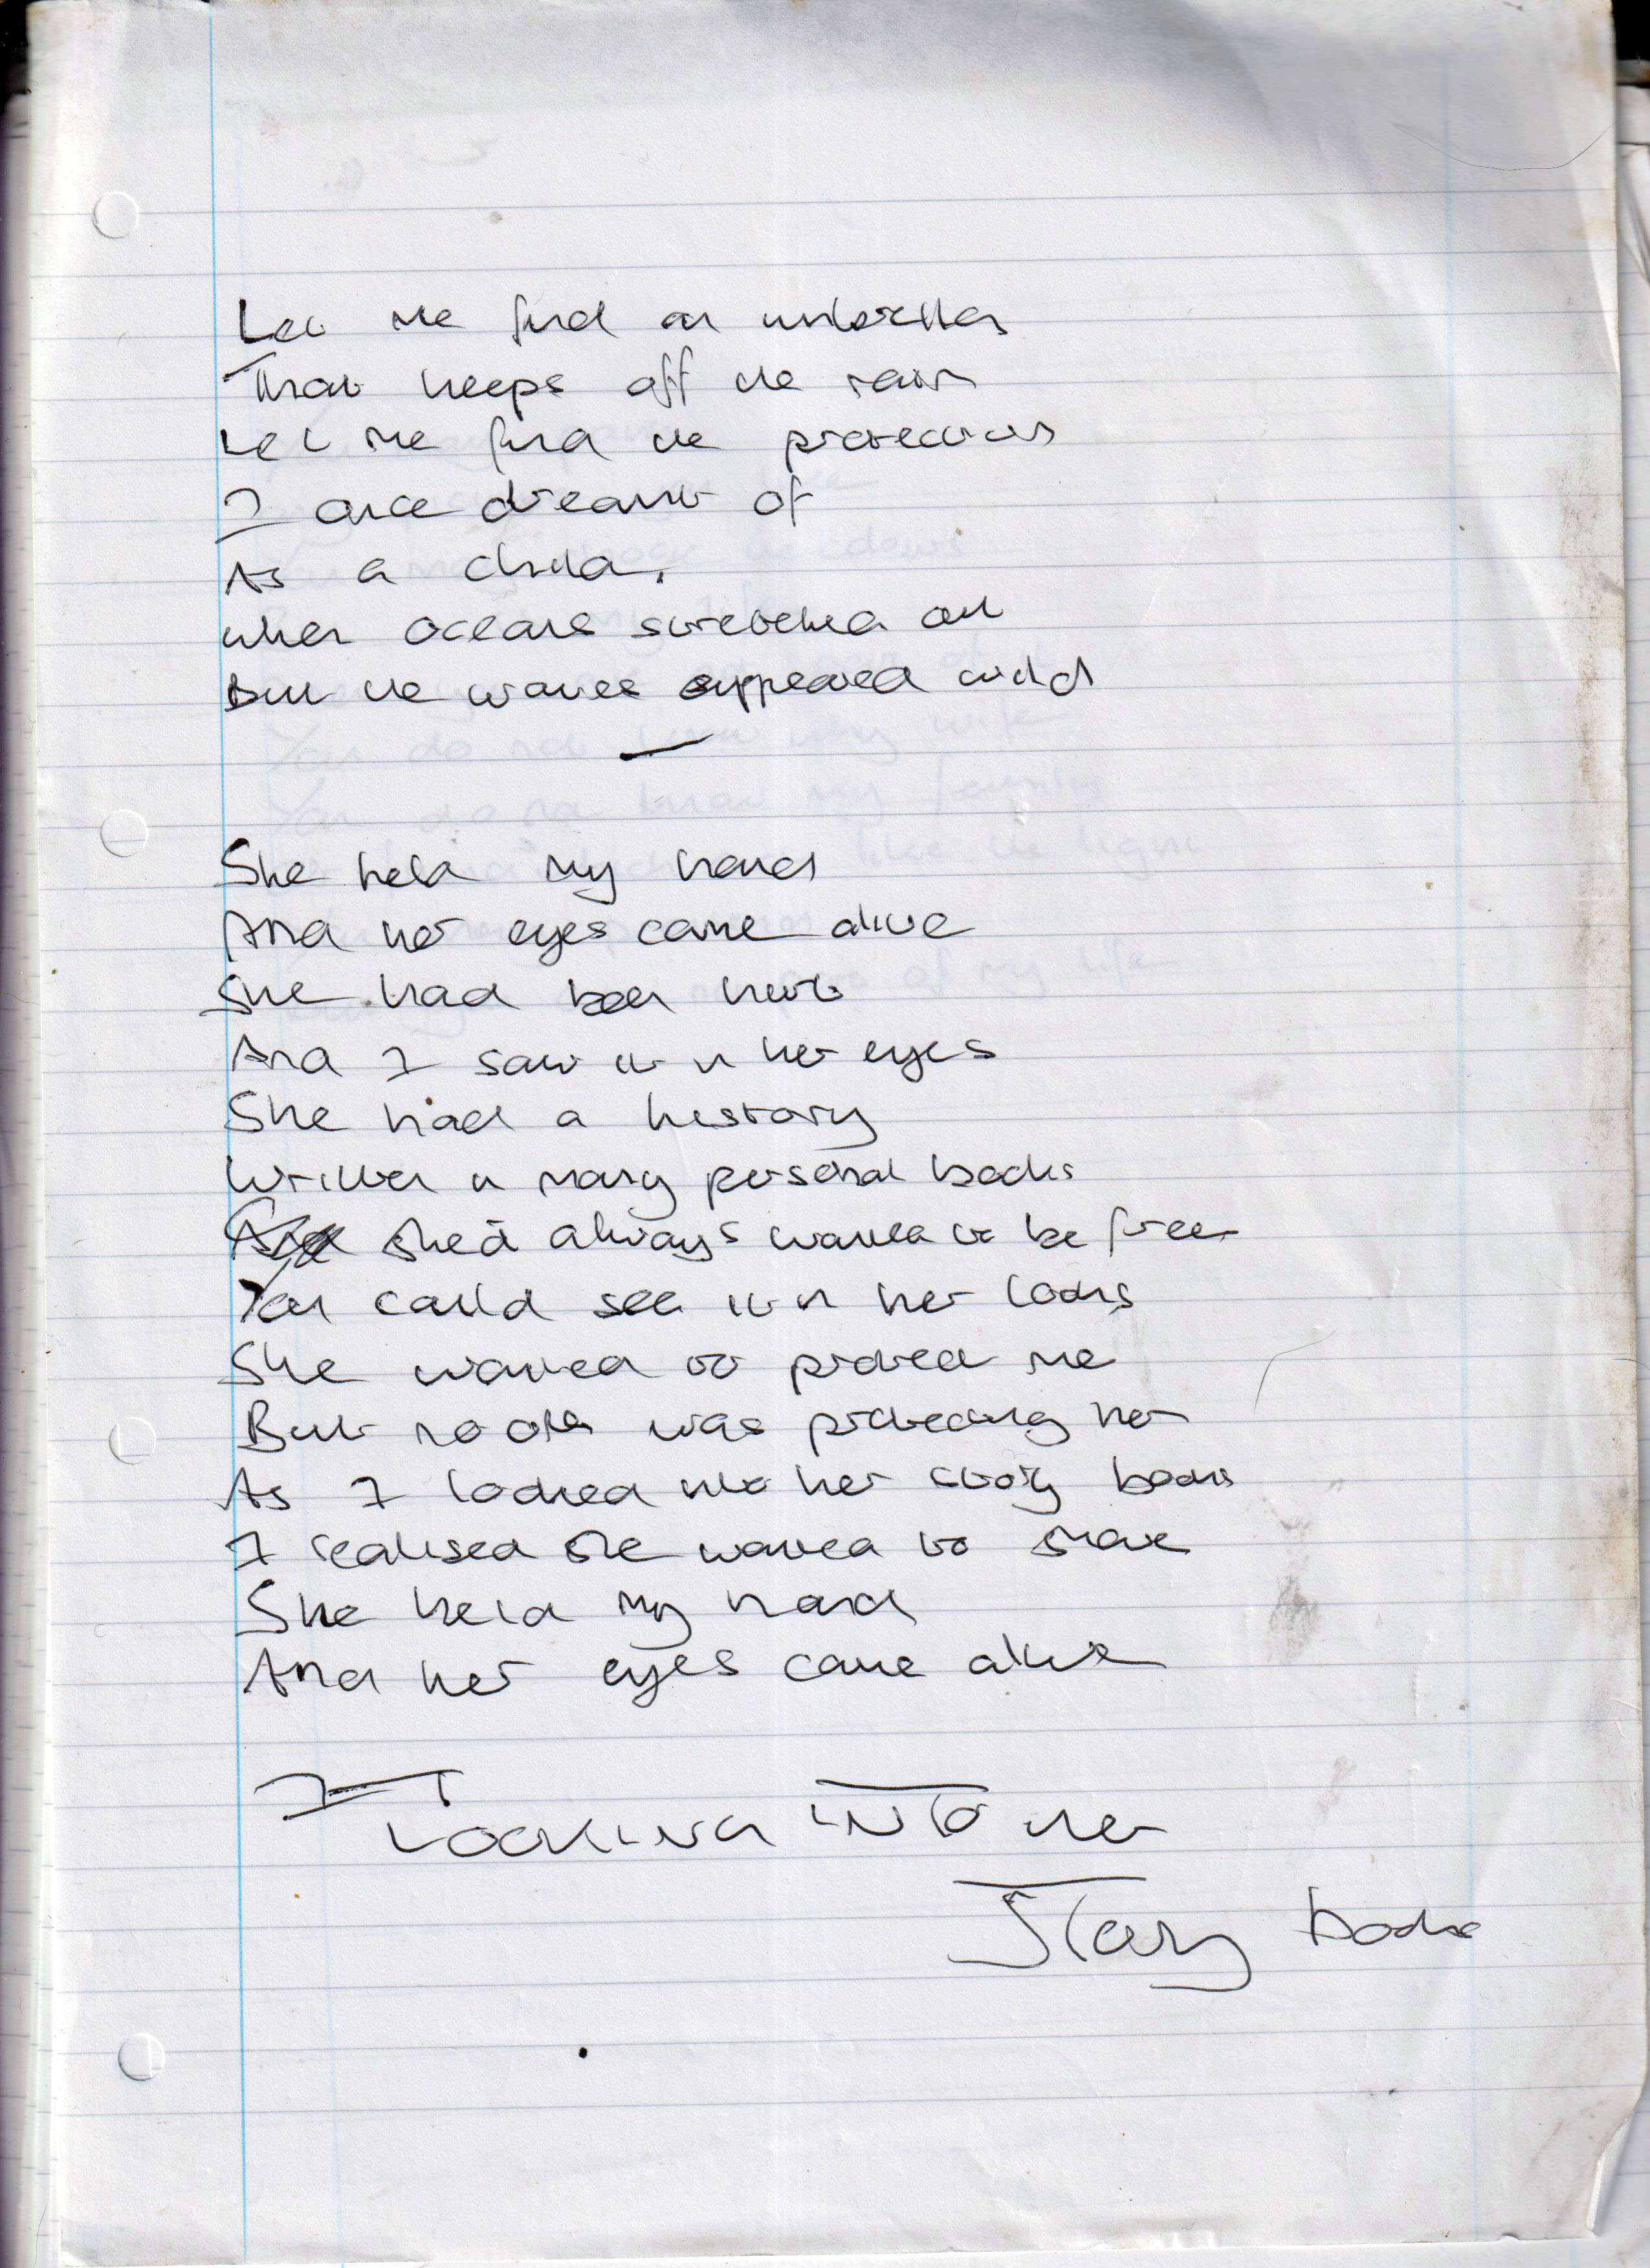 Let me find an umbrella
That keeps off the rain
Let me find the protection
I once dreamt of
As a child,
when oceans stretched out
But the waves appeared wild
She held my hand
And her eyes came alive
She had been hurt
And I saw it in her eyes
She had a history
Written in many personal books
She'd always wanted to be free
You could see it in her looks
She wanted to protect me
But no one was protecting her
As I looked into her story books
I realised she wanted to share
She held my hand
And her eyes came alive
LOOKING INTO her
Story books